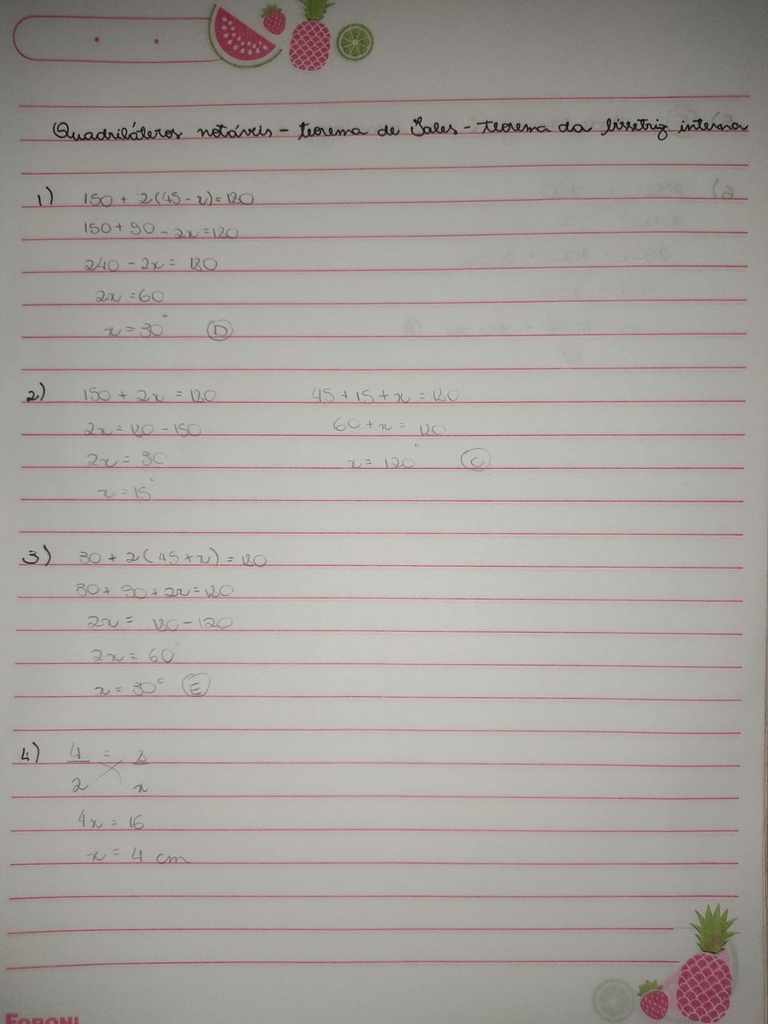 Quadriláteros notáveis - teorema de Tales - teorema da bissetriz interna
1) 150 + 2(45 - x) = 180
150 + 90 - 2x = 180
240 - 2x = 180
2x = 60
x = 30° (D)
2) 150 + 2x = 180 45 + 15 + x = 180
2x = 180 - 150 60 + x = 180
2x = 30 x = 120° (C)
x = 15°
3) 30 + 2(45 + x) = 180
30 + 90 + 2x = 180
2x = 180 - 120
2x = 60°
x = 30° (E)
4) 4 = 8
2 x
4x = 16
x = 4 cm
FORONI